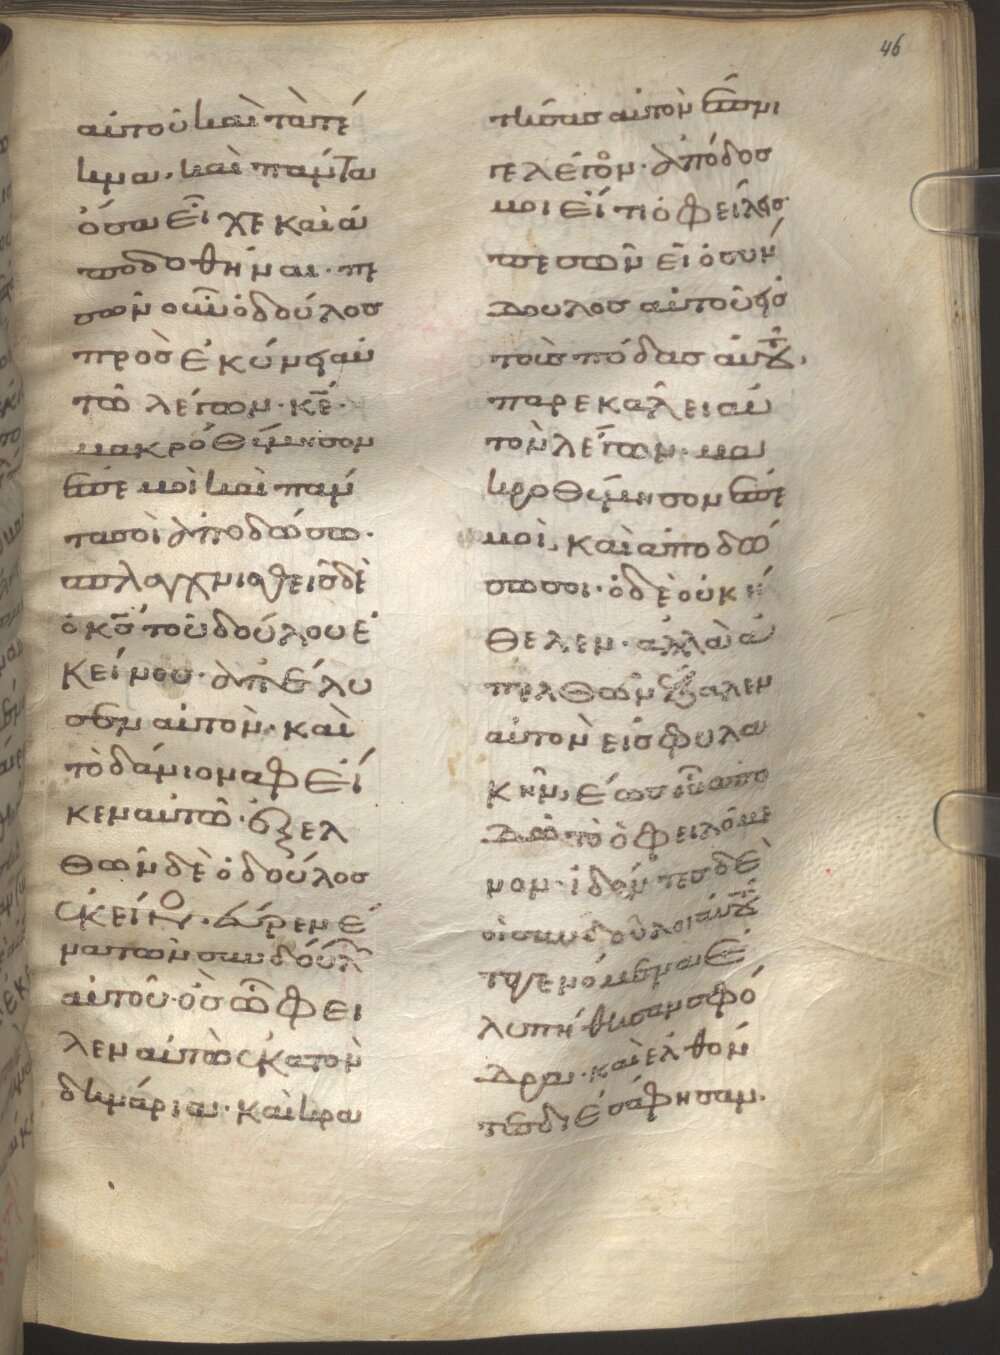 46
αὐτοῦ καὶ τὰ τέ
κνα, καὶ πάντα
ὅσα εἶχε καὶ ἀ
ποδοθῆναι· πε
σὼν οὖν ὁ δοῦλος
προσεκύνει αὐ
τῶ λέγων· κε̅·
μακροθύμησον
ἐπ' ἐμοὶ καὶ πάν
τα σοὶ ἀποδώσω·
σπλαγχνισθεὶς δὲ
ὁ κ̅ς̅ τοῦ δούλου ἐ
κείνου· ἀπέλυ
σεν αὐτὸν· καὶ
τὸ δάνιον ἀφεί
κεν αὐτῶ· ἐξελ
θὼν δὲ ὁ δοῦλος
ἐκεῖνο· εὗρεν ἕ
να τῶν συνδούλ
αὐτοῦ· ὃς ὤφει
λεν αὐτῶ ἑκατὸν
δηνάρια· καὶ κρα
τήσας αὐτὸν ἔπνι
γε λέγων· ἀπόδος
μοι εἴ τι ὀφείλεις·
πεσὼν οὖν ὁ σύν
δουλος αὐτοῦ εἰς
τοὺς πόδας αὐτοῦ,
παρεκάλει αὐ
τὸν λέγων· μα
κροθύμησον ἐπ' ἐ
μοὶ, καὶ ἀποδώ
σω σοι· ὁ δὲ οὐκ ἤ
θελεν· ἀλλὰ ἀ
πελθὼν ἔβαλεν
αὐτὸν εἰς φυλα
κὴν, ἕως οὗ ἀπο
δῶ τὸ ὀφειλόμε
νον· ἰδόντες δὲ
οἱ σύνδουλοι αὐτοῦ
τὰ γενόμενα ἐ
λυπήθησαν σφό
δρα· καὶ ἐλθόν
τες διεσάφησαν.